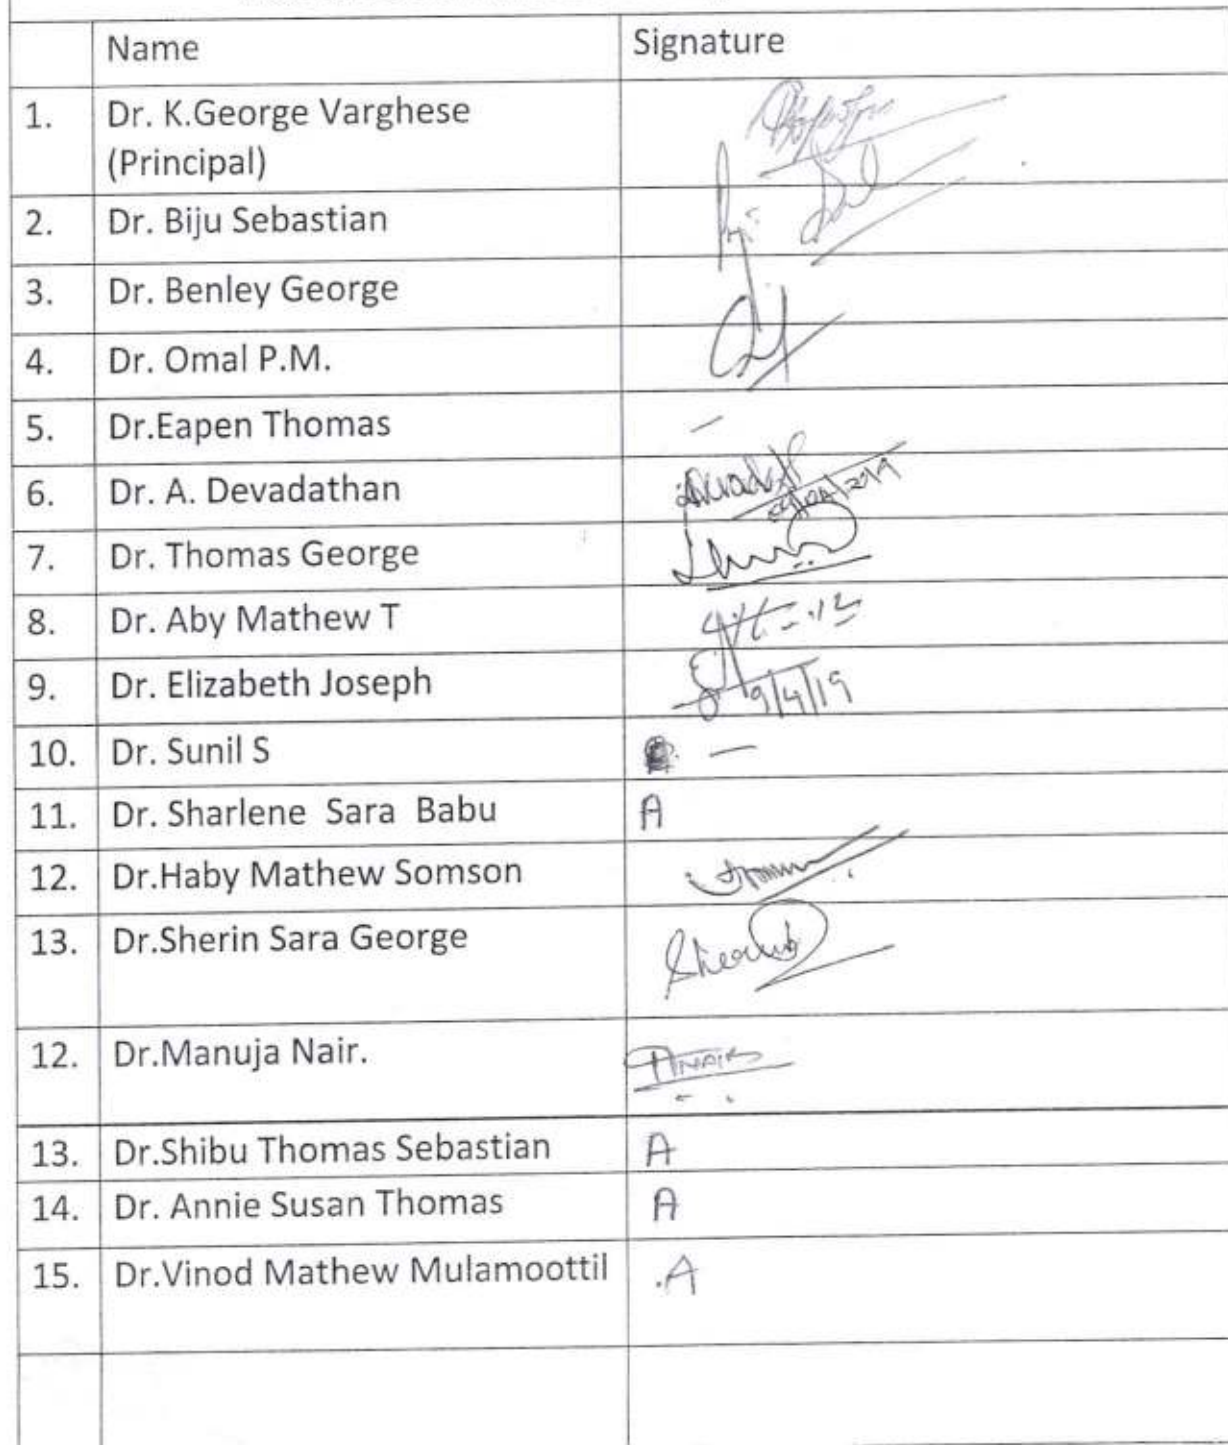 Name Signature
1. Dr. K.George Varghese
(Principal)
2. Dr. Biju Sebastian
3. Dr. Benley George
4. Dr. Omal P.M.
5. Dr.Eapen Thomas –
6. Dr. A. Devadathan
09/04/2019
7. Dr. Thomas George
8. Dr. Aby Mathew T
9. Dr. Elizabeth Joseph 9/4/19
10. Dr. Sunil S –
11. Dr. Sharlene Sara Babu A
12. Dr.Haby Mathew Somson
13. Dr.Sherin Sara George
12. Dr.Manuja Nair.
13. Dr.Shibu Thomas Sebastian A
14. Dr. Annie Susan Thomas A
15. Dr.Vinod Mathew Mulamoottil .A